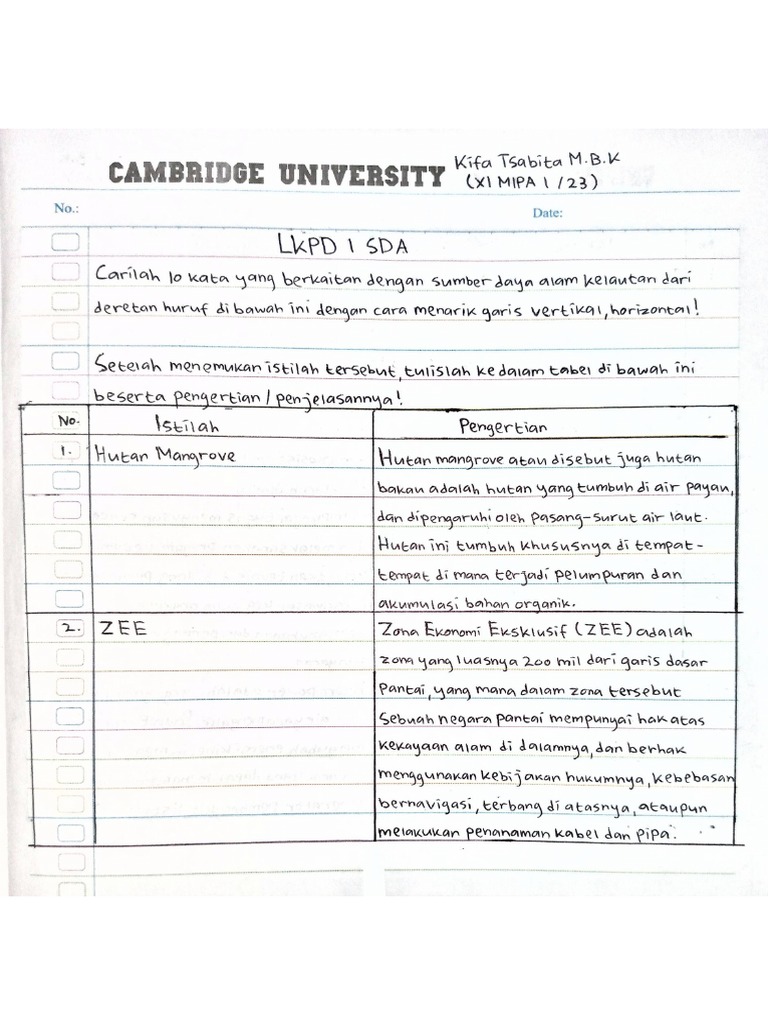 CAMBRIDGE UNIVERSITY Kifa Tsabita M.B.K
(XI MIPA 1 / 23)
No.: Date:
LKPD 1 SDA
Carilah 10 kata yang berkaitan dengan sumber daya alam kelautan dari
deretan huruf di bawah ini dengan cara menarik garis vertikal, horizontal!
Setelah menemukan istilah tersebut, tulislah kedalam tabel di bawah ini
beserta pengertian / penjelasannya!
No. Istilah Pengertian
1. Hutan Mangrove Hutan mangrove atau disebut juga hutan
bakau adalah hutan yang tumbuh di air payau,
dan dipengaruhi oleh pasang-surut air laut.
Hutan ini tumbuh khususnya di tempat-
tempat di mana terjadi pelumpuran dan
akumulasi bahan organik.
2. ZEE Zona Ekonomi Eksklusif (ZEE) adalah
zona yang luasnya 200 mil dari garis dasar
pantai, yang mana dalam zona tersebut
sebuah negara pantai mempunyai hak atas
kekayaan alam di dalamnya, dan berhak
menggunakan kebijakan hukumnya, kebebasan
bernavigasi, terbang di atasnya, ataupun
melakukan penanaman kabel dan pipa.